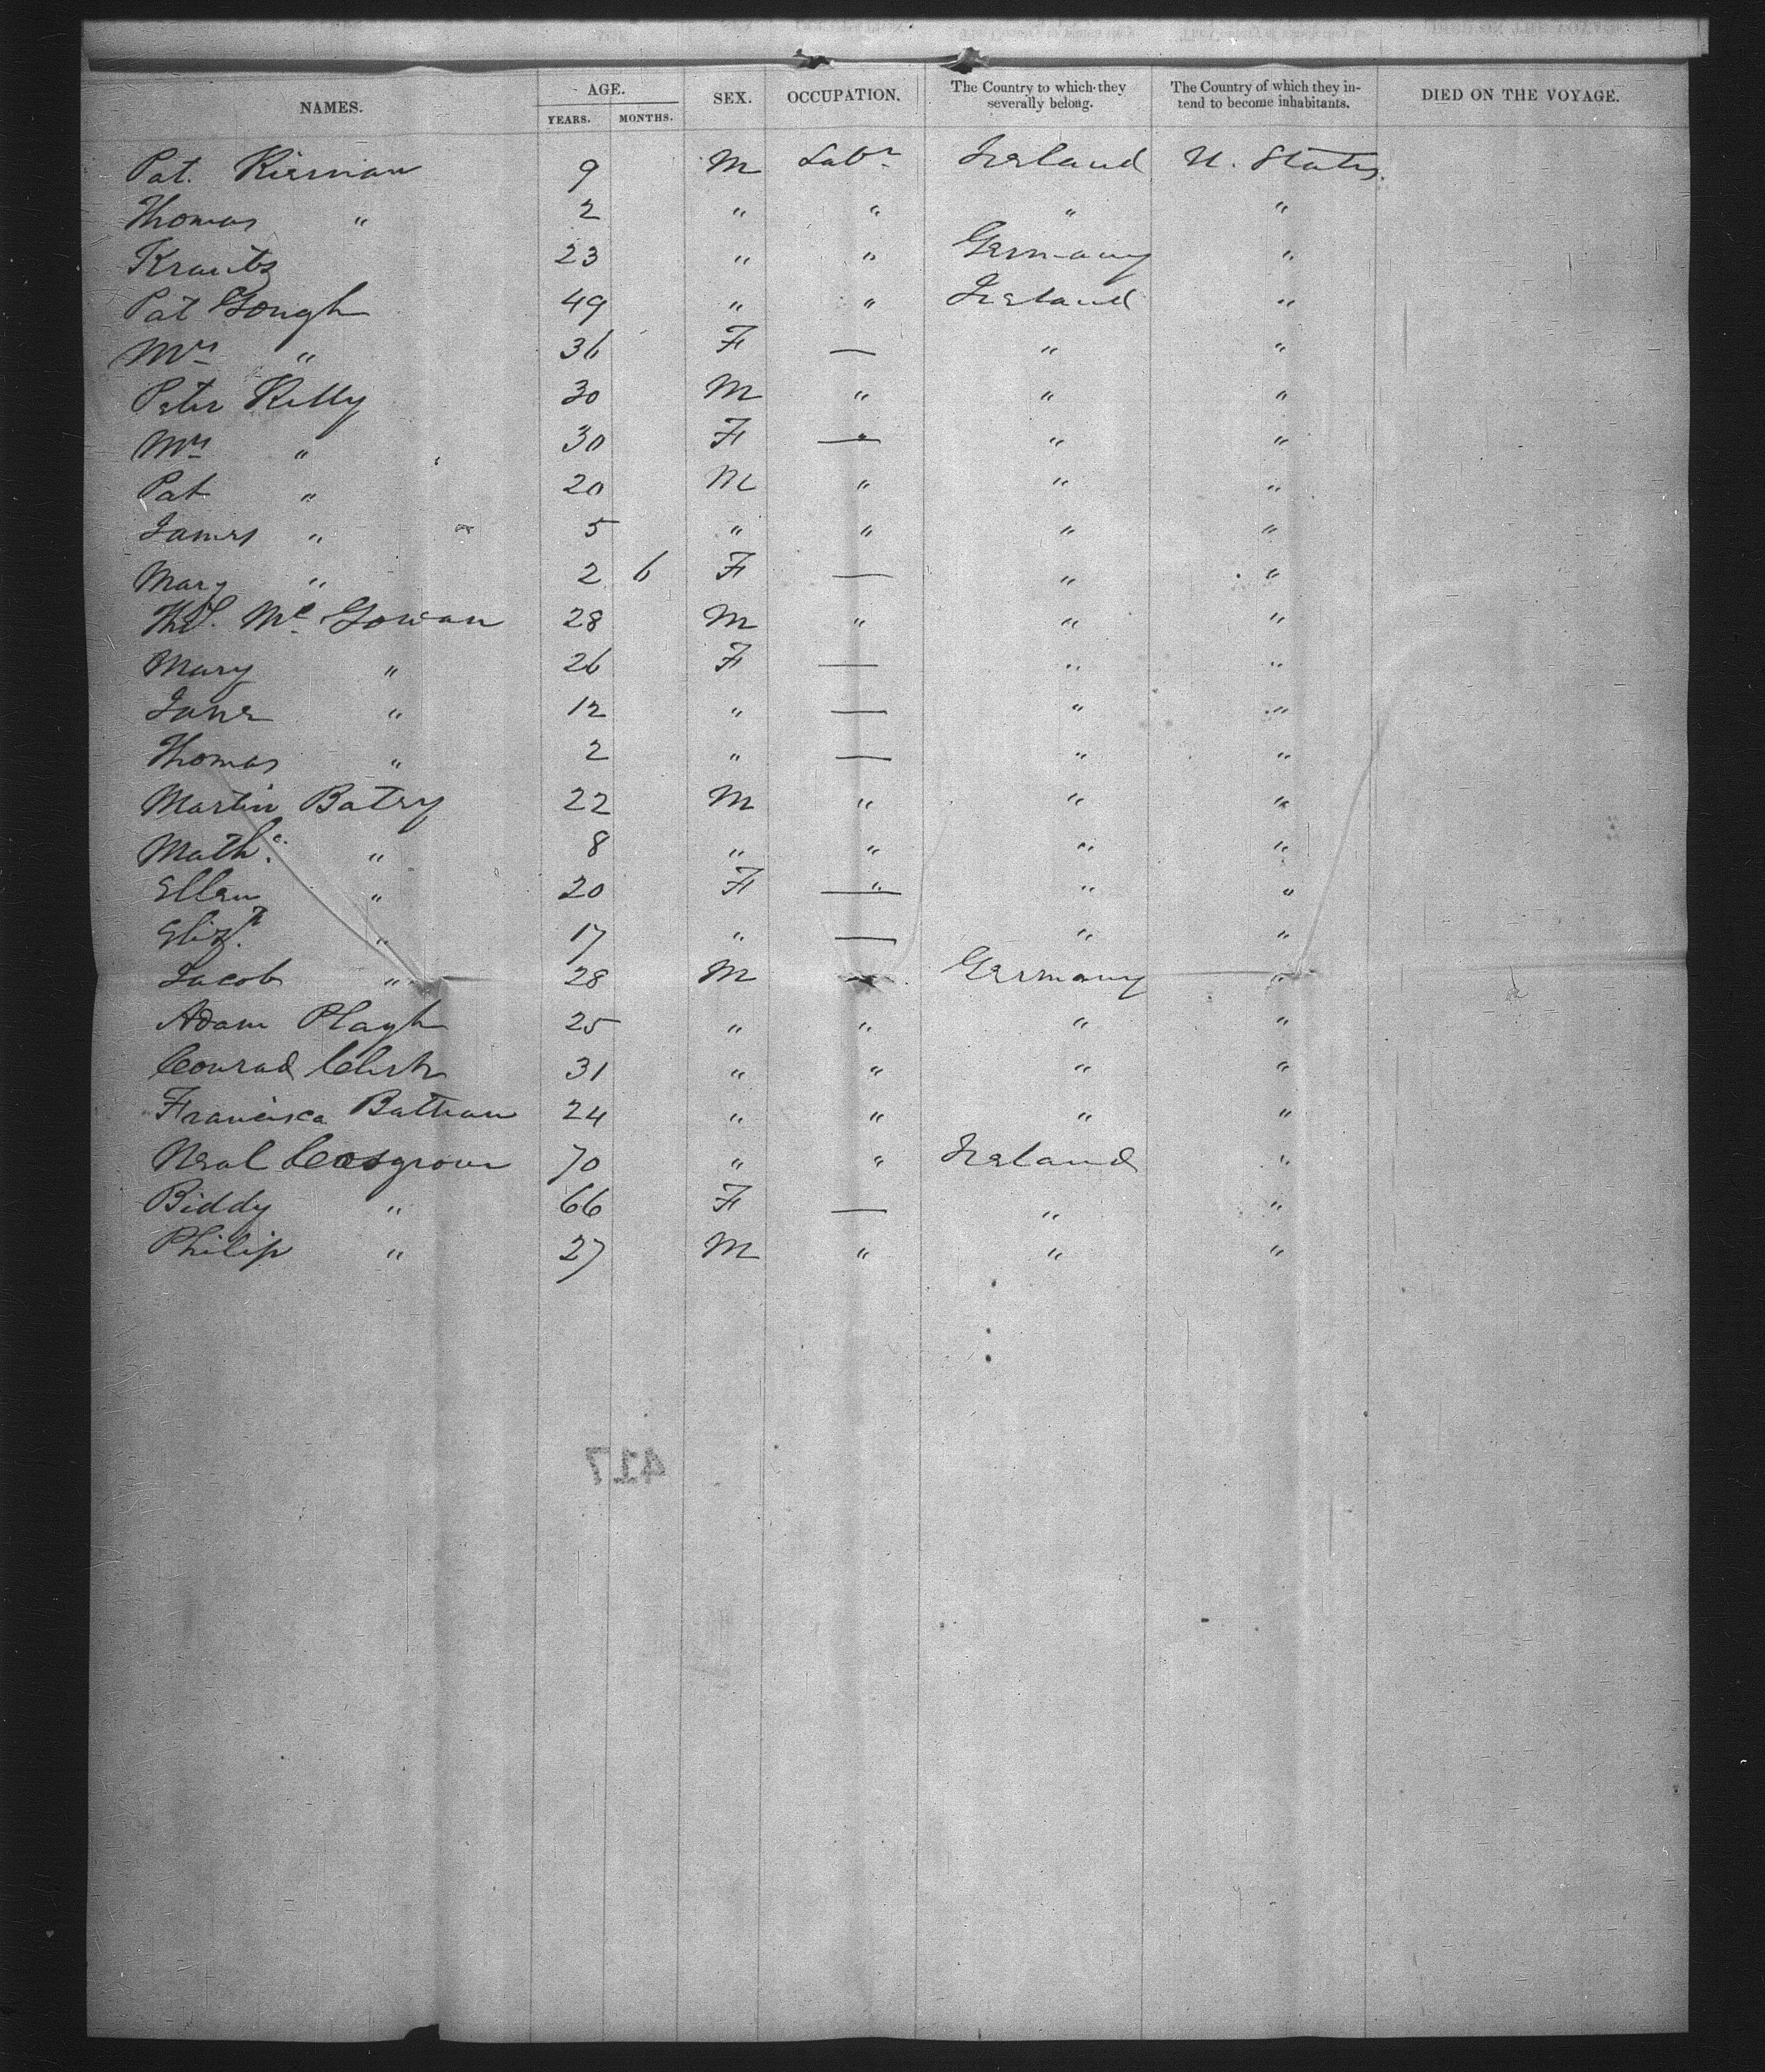 NAMES. AGE. YEARS. MONTHS. SEX. OCCUPATION. The Country to which they severally belong. The Country of which they intend to become inhabitants. DIED ON THE VOYAGE.
Pat. Kiernan 9 M Labr Ireland U. States.
Thomas " 2 " " " "
Krantz 23 " " Germany "
Pat Gough 49 " " Ireland "
Mrs " 36 F — " "
Peter Kelly 30 M " " "
Mrs " 30 F — " "
Pat " 20 M " " "
James " 5 " " " "
Mary " 2 6 F — " "
Thos. Mc Gowan 28 M " " "
Mary " 26 F — " "
Jane " 12 " — " "
Thomas " 2 " — " "
Martin Batey 22 M " " "
Math. " 8 " " " "
Ellen " 20 F — " "
Elizth " 17 " — " "
Jacob " 28 M " Germany "
Adam 25 " " " "
Conrad 31 " " " "
Francisca 24 " " " "
Neal Cosgrove 70 " " Ireland "
Biddy " 66 F — " "
Philip " 27 M " " "
417